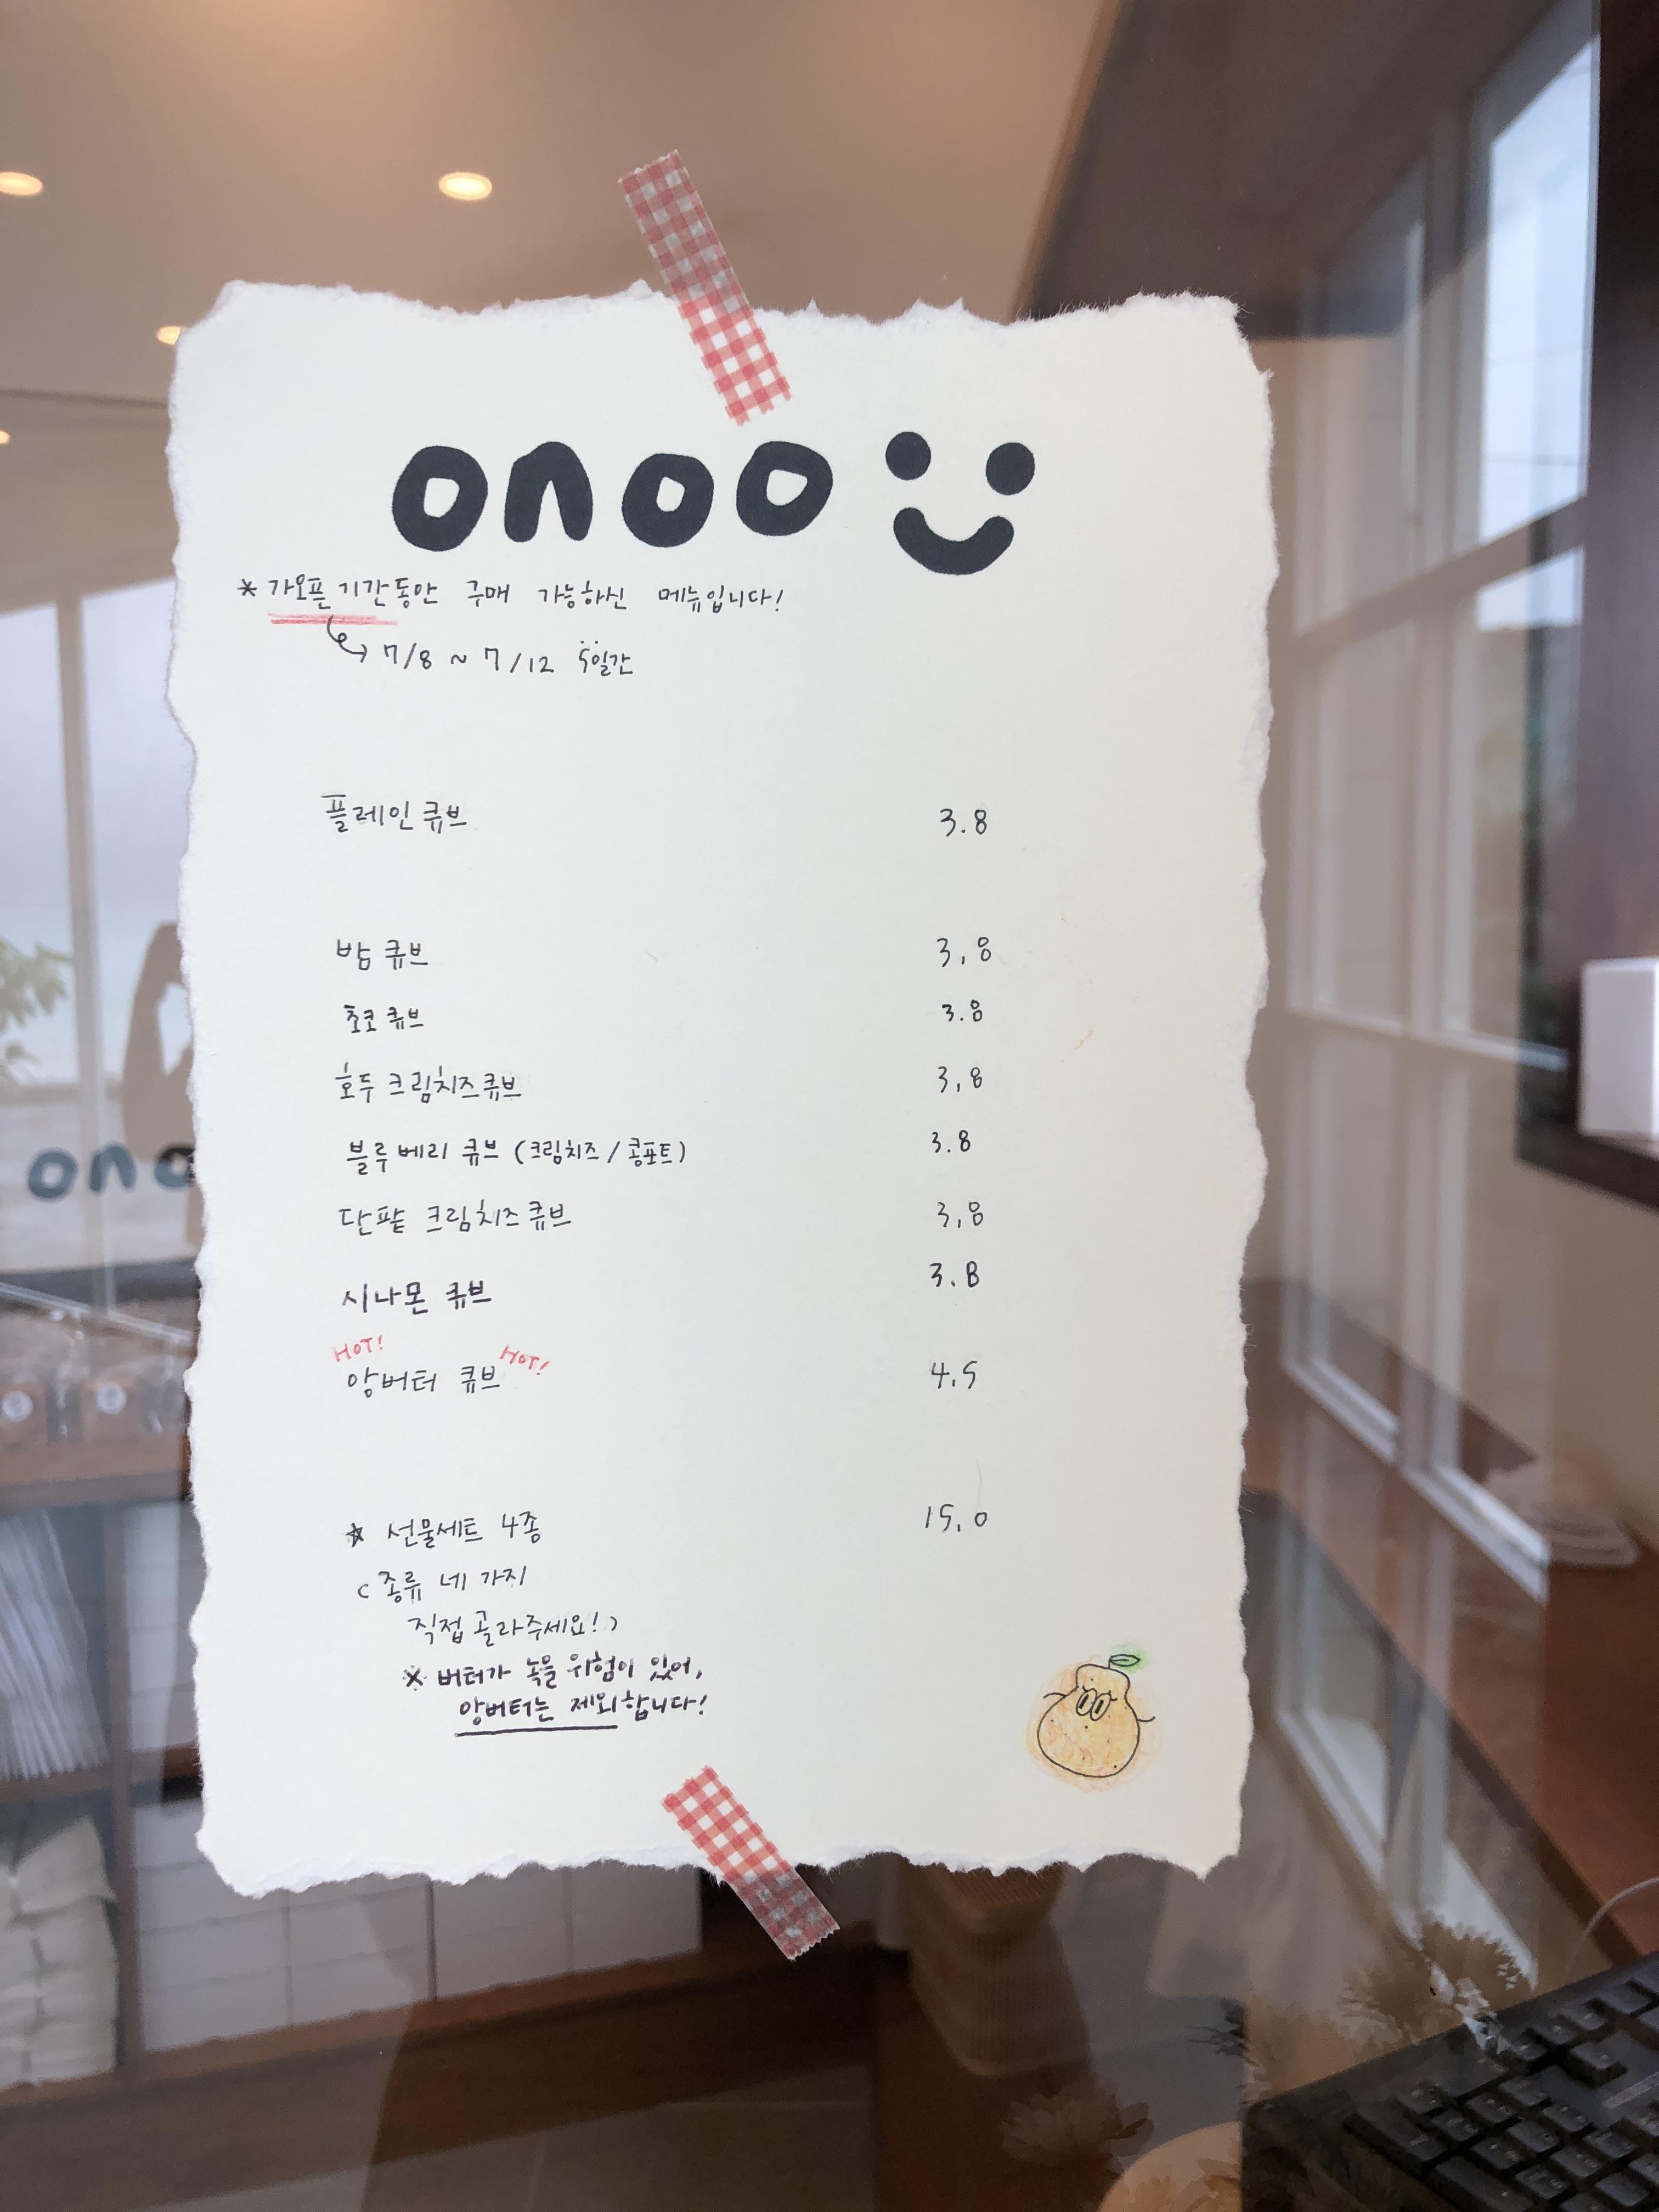 onoo
* 가오픈 기간동안 구매 가능하신 메뉴입니다!
7/8 ~ 7/12 5일간
플레인 큐브 3.8
밤 큐브 3,8
초코 큐브 3.8
호두 크림치즈 큐브 3,8
블루베리 큐브 (크림치즈 / 콩포트) 3.8
단팥 크림치즈 큐브 3,8
시나몬 큐브 3.8
HOT! HOT!
앙버터 큐브 4.5
☆ 선물세트 4종 15.0
(종류 네 가지
직접 골라주세요!)
※ 버터가 녹을 위험이 있어,
앙버터는 제외합니다!
ono